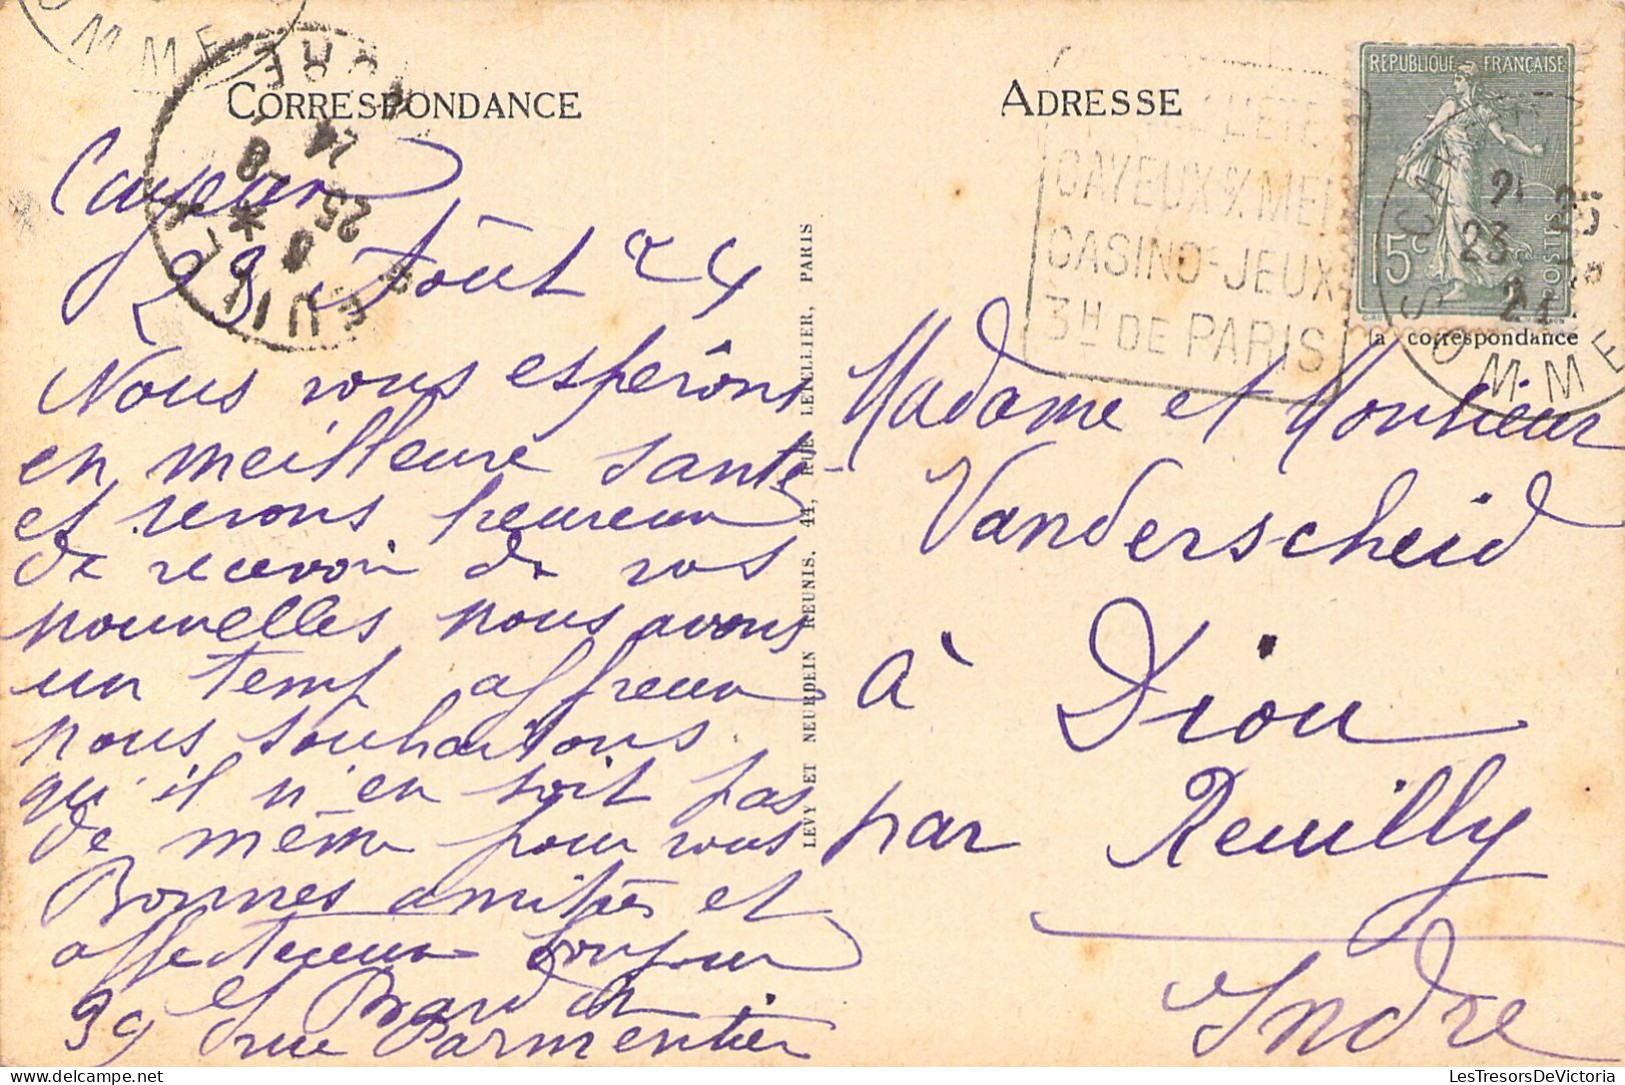 CORRESPONDANCE
Cayeux
23 Août 24
Nous vous espérons
en meilleure santé
et serons heureux
de recevoir de vos
nouvelles nous avons
un temps affreux
nous souhaitons
qu'il n'en soit pas
de même pour vous
Bonnes amitiés et
affectueux bonjour
39 rue Parmentier
LEVY ET NEURDEIN REUNIS, 44, RUE LETELLIER, PARIS
ADRESSE
CAYEUX S/ MER
CASINO-JEUX
3H DE PARIS
REPUBLIQUE FRANÇAISE
15c
POSTES
la correspondance
SOMME
Madame et Monsieur
Vanderscheid
à Diou
par Reuilly
Indre
LesTresorsDeVictoria